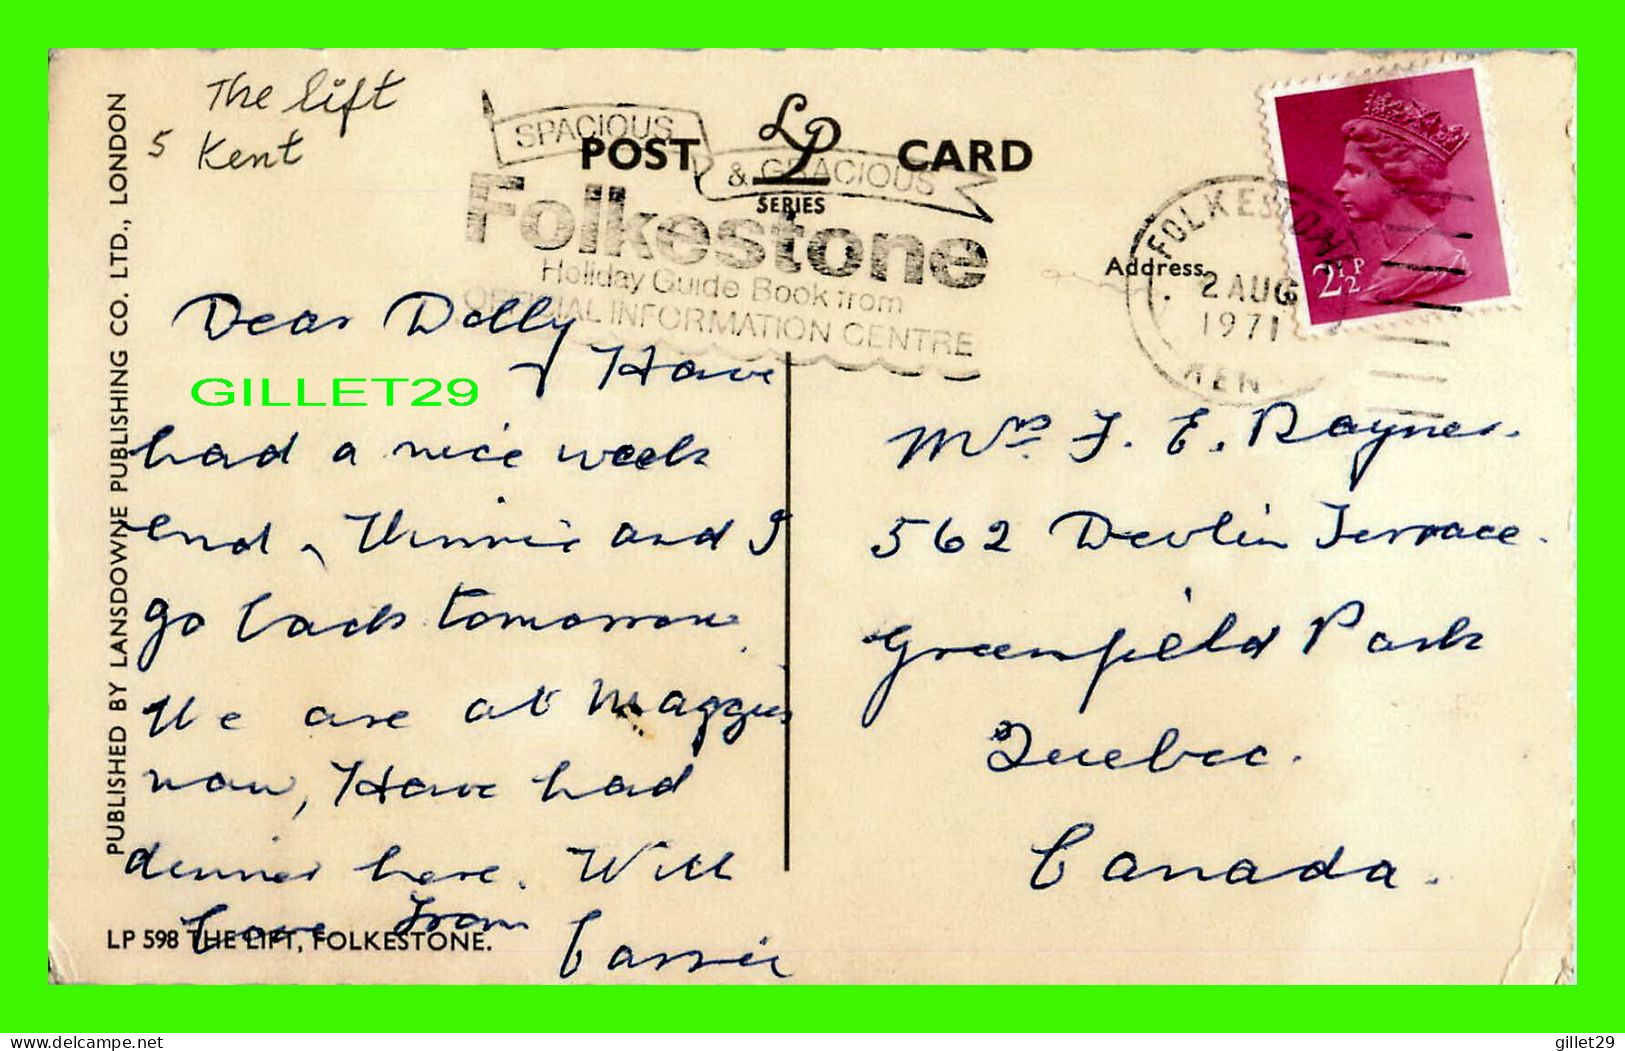 The lift
5 Kent
SPACIOUS
& GRACIOUS
POST CARD
LP
SERIES
Folkestone
Holiday Guide Book from
OFFICIAL INFORMATION CENTRE
FOLKESTONE
2 AUG
1971
KEN
2½P
Address
Dear Dolly
Have
had a nice week
end, Winnie and I
go back tomorrow.
We are at Maggies
now, Have had
dinner here. With
Love from
Cassie
GILLET29
Mrs F. E. Rayner.
562 Devlin Terrace.
Greenfield Park
Quebec.
Canada.
PUBLISHED BY LANSDOWNE PUBLISHING CO. LTD., LONDON
LP 598 THE LIFT, FOLKESTONE.
www.delcampe.net
gillet29